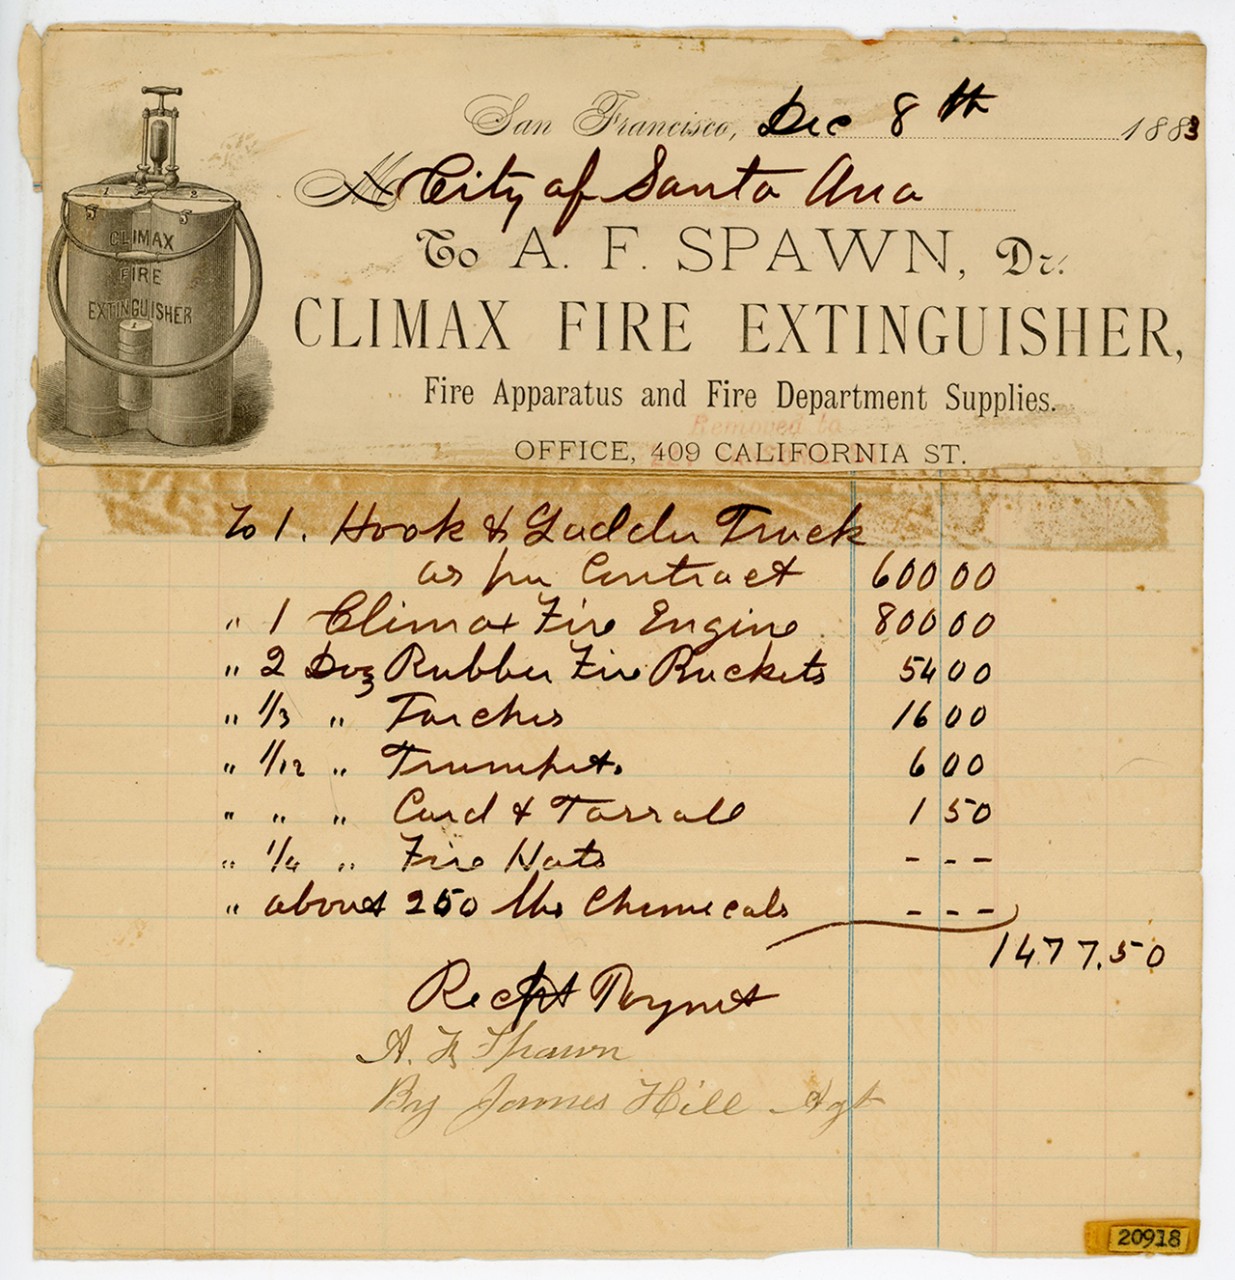 San Francisco, Dec 8th 1883
M City of Santa Ana
To A. F. SPAWN, Dr.
CLIMAX FIRE EXTINGUISHER,
Fire Apparatus and Fire Department Supplies.
Removed to
OFFICE, 409 CALIFORNIA ST.
1 2
CLIMAX
FIRE
EXTINGUISHER
1
To 1. Hook & Ladder Truck
as per Contract 600 00
" 1 Climax Fire Engine 800 00
" 2 Doz Rubber Fire Buckets 54 00
" 1/3 " Torches 16 00
" 1/12 " Trumpets 6 00
" " " Cord & Tassall 1 50
" 1/4 " Fire Hats - - -
" about 250 lbs Chemecals - - -
1477.50
Recpt Paymet
A. F. Spawn
By James Hill Agt
20918